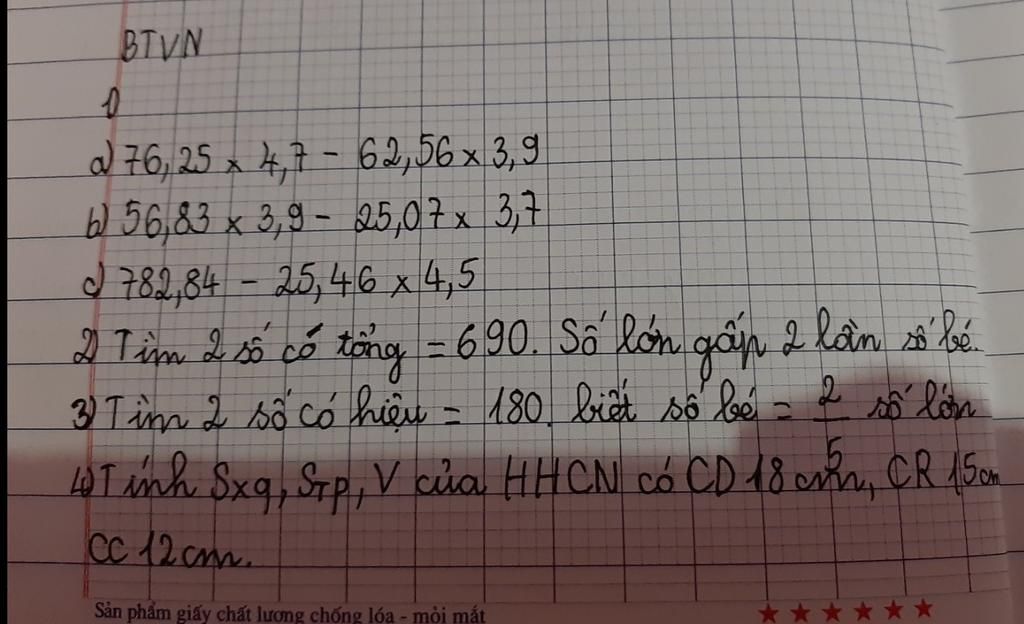 BTVN
1)
a) 76,25 × 4,7 - 62,56 × 3,9
b) 56,83 × 3,9 - 25,07 × 3,7
c) 782,84 - 25,46 × 4,5
2) Tìm 2 số có tổng = 690. Số lớn gấp 2 lần số bé.
3) Tìm 2 số có hiệu = 180. biết số bé = 2/5 số lớn
4) Tính Sxq, STp, V của HHCN có CD 18 cm, CR 15cm
CC 12cm.
Sản phẩm giấy chất lượng chống lóa - mỏi mắt